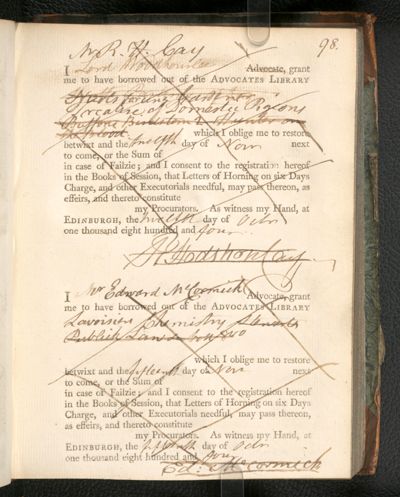 Mr R. H. Cay
98.
I Lord Woodhouselee Advocate, grant
me to have borrowed out of the ADVOCATES LIBRARY
Treatise of Domestic Pigeons
which I oblige me to restore
betwixt and the twelfth day of Novr next
to come, or the Sum of
in case of Failzie; and I consent to the registration hereof
in the Books of Session, that Letters of Horning on six Days
Charge, and other Executorials needful, may pass thereon, as
effeirs, and thereto constitute
my Procurators. As witness my Hand, at
EDINBURGH, the twelfth day of Octr
one thousand eight hundred and four
R. Hodshon Cay
I Mr Edward McCormick Advocate, grant
me to have borrowed out of the ADVOCATES LIBRARY
Lavoisiers Chemistry
which I oblige me to restore
betwixt and the fifteenth day of Novr next
to come, or the Sum of
in case of Failzie; and I consent to the registration hereof
in the Books of Session, that Letters of Horning on six Days
Charge, and other Executorials needful, may pass thereon,
as effeirs, and thereto constitute
my Procurators. As witness my Hand, at
EDINBURGH, the fifteenth day of Octr
one thousand eight hundred and four
Ed. McCormick